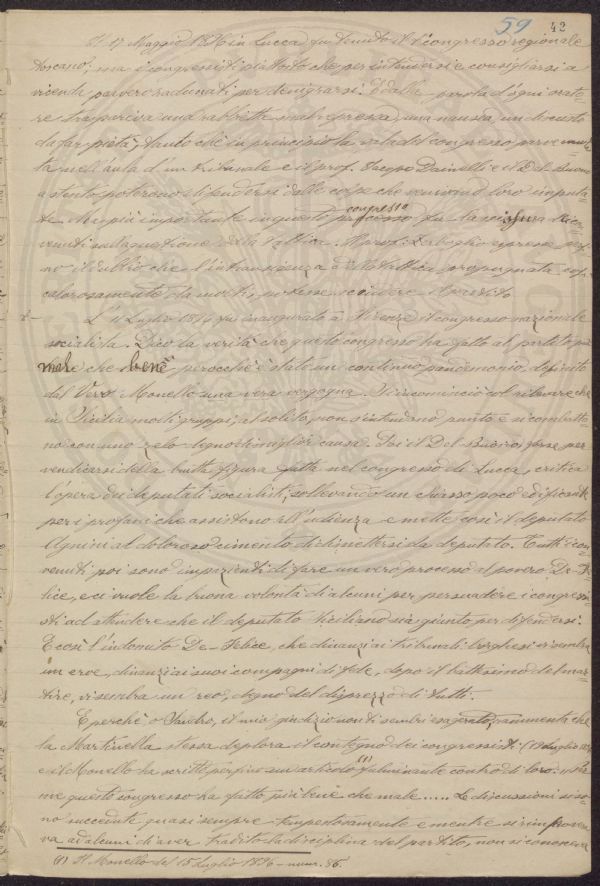 59 42
Il 17 Maggio 1896 in Lucca fu tenuto il 1° congresso regionale
toscano; ma i congressisti piuttosto che per intendersi e consigliarsi a
vicenda, parvero radunati per denigrarsi. Dalla parola d'ogni orato=
re traspariva una rabbietta mal repressa, una nausea, un disgusto
da far pietà, tanto che in principio la sala del congresso parve mu=
ta nell'aula d'un tribunale e il prof. Jacopo Danielli e il Del Buono
a stento poterono difendersi dalle colpe che venivano loro imputa=
te. Ma più importante in questo congresso fu la
venuti sulla questione della tattica. Il prof. espresse per=
fino il dubbio che l'intransigenza o la tattica propugnata così
calorosamente da molti, potesse uccidere il partito.
L' 11 Luglio 1896 fu inaugurato a Firenze il congresso nazionale
socialista. Dico la verità che questo congresso ha fatto al partito più
male che bene, perocchè è stato un continuo pandemonio, definito
dal Vero Monello una vera vergogna. Si incominciò col rilevare che
in Sicilia molti gruppi, al solito, non s'intendono punto e si combatto=
no con uno zelo degno di miglior causa. Poi il Del Buono, forse per
vendicarsi della brutta figura fatta nel congresso di Lucca, critica
l'opera dei deputati socialisti, sollevando un chiasso poco edificante
per i profani che assistono all'udienza e mette così il deputato
Agnini al doloroso cimento di dimettersi da deputato. Tutti i con=
venuti poi sono impazienti di fare un vero processo al povero De Fe=
lice, e ci vuole la buona volontà di alcuni per persuadere i congressi=
sti ad attendere che il deputato siciliano sia giunto, per difendersi.
E così l'indomito De-Felice, che dinanzi ai tribunali borghesi vi sembra
un eroe, dinanzi ai suoi compagni di fede, dopo il battesimo del mar=
tire, vi sembra un reo, degno del disprezzo di tutti.
E perchè o Sandro, il mio giudizio non ti sembri esagerato, rammenta che
la Martinella stessa deplora il contegno dei congressisti (18 Luglio 96)
e il Monello ha scritto perfino un articolo (1) fulminante contro di loro:
me questo congresso ha fatto più bene che male..... Le discussioni si so=
no succedute quasi sempre tempestosamente e mentre si rimprovera=
va ad alcuni di aver tradito la disciplina del partito, non si conosceva
(1) Il Monello del 15 Luglio 1896 - num. 86.